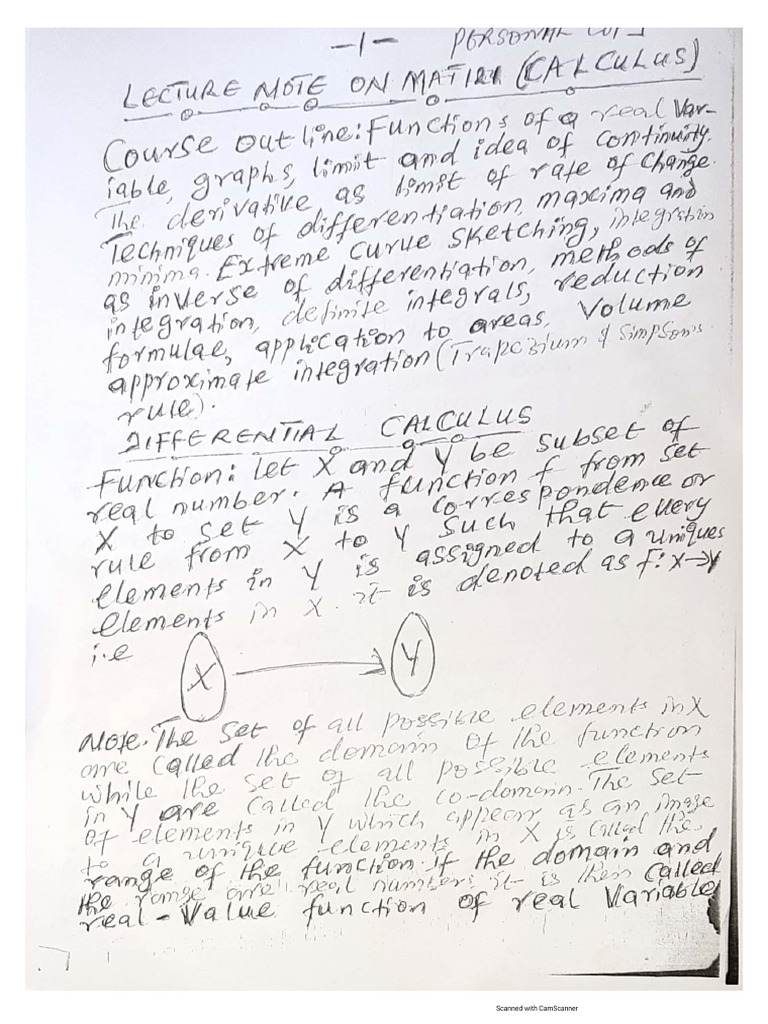 -1-
PERSONAL
LECTURE NOTE ON (CALCULUS)
Course outline: Functions of a real Var-
iable, graphs, limit and idea of continuity.
The derivative as limit of rate of Change.
Techniques of differentiation, maxima and
minima. Extreme curve sketching, integration
as inverse of differentiation, methods of
integration, definite integrals, reduction
formulae, application to areas, Volume
approximate integration (Trapezium & Simpson's
rule).
DIFFERENTIAL CALCULUS
Function: Let X and Y be subset of
real number. A function f from set
X to set Y is a correspondence or
rule from X to Y such that every
elements in Y is assigned to a uniques
elements in X. it is denoted as f: X→Y
i.e
X Y
Note. The set of all possible elements in X
are called the domain of the function
while the set of all possible elements
in Y are called the co-domain. The set
of elements in Y which appear as an image
to a unique elements in X is called the
range of the function. if the domain and
the range are real number, it is then called
real-Value function of real Variable
Scanned with CamScanner